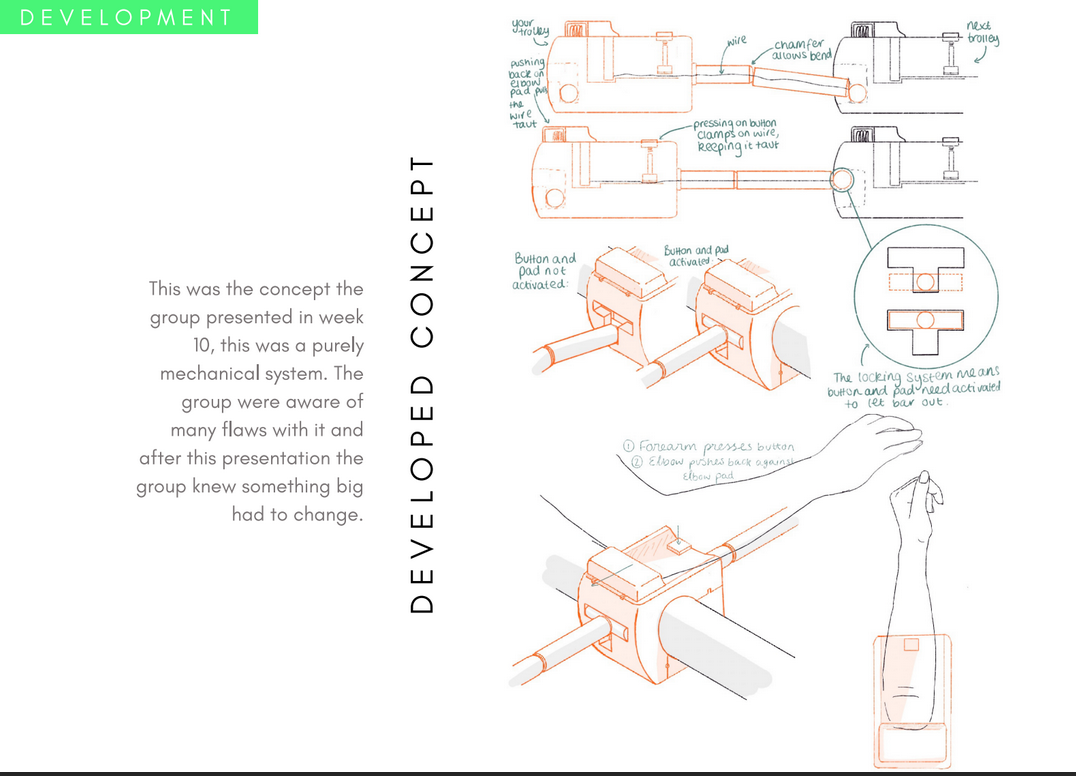 DEVELOPMENT
This was the concept the
group presented in week
10, this was a purely
mechanical system. The
group were aware of
many flaws with it and
after this presentation the
group knew something big
had to change.
DEVELOPED CONCEPT
your
trolley
pushing
back on
elbow
pad pulls
the
wire
taut
wire
chamfer
allows bend
next
trolley
pressing on button
clamps on wire,
keeping it taut
Button and
pad not
activated:
Button and pad
activated:
The locking system means
button and pad need activated
to let bar out.
① Forearm presses button
② Elbow pushes back against
elbow pad